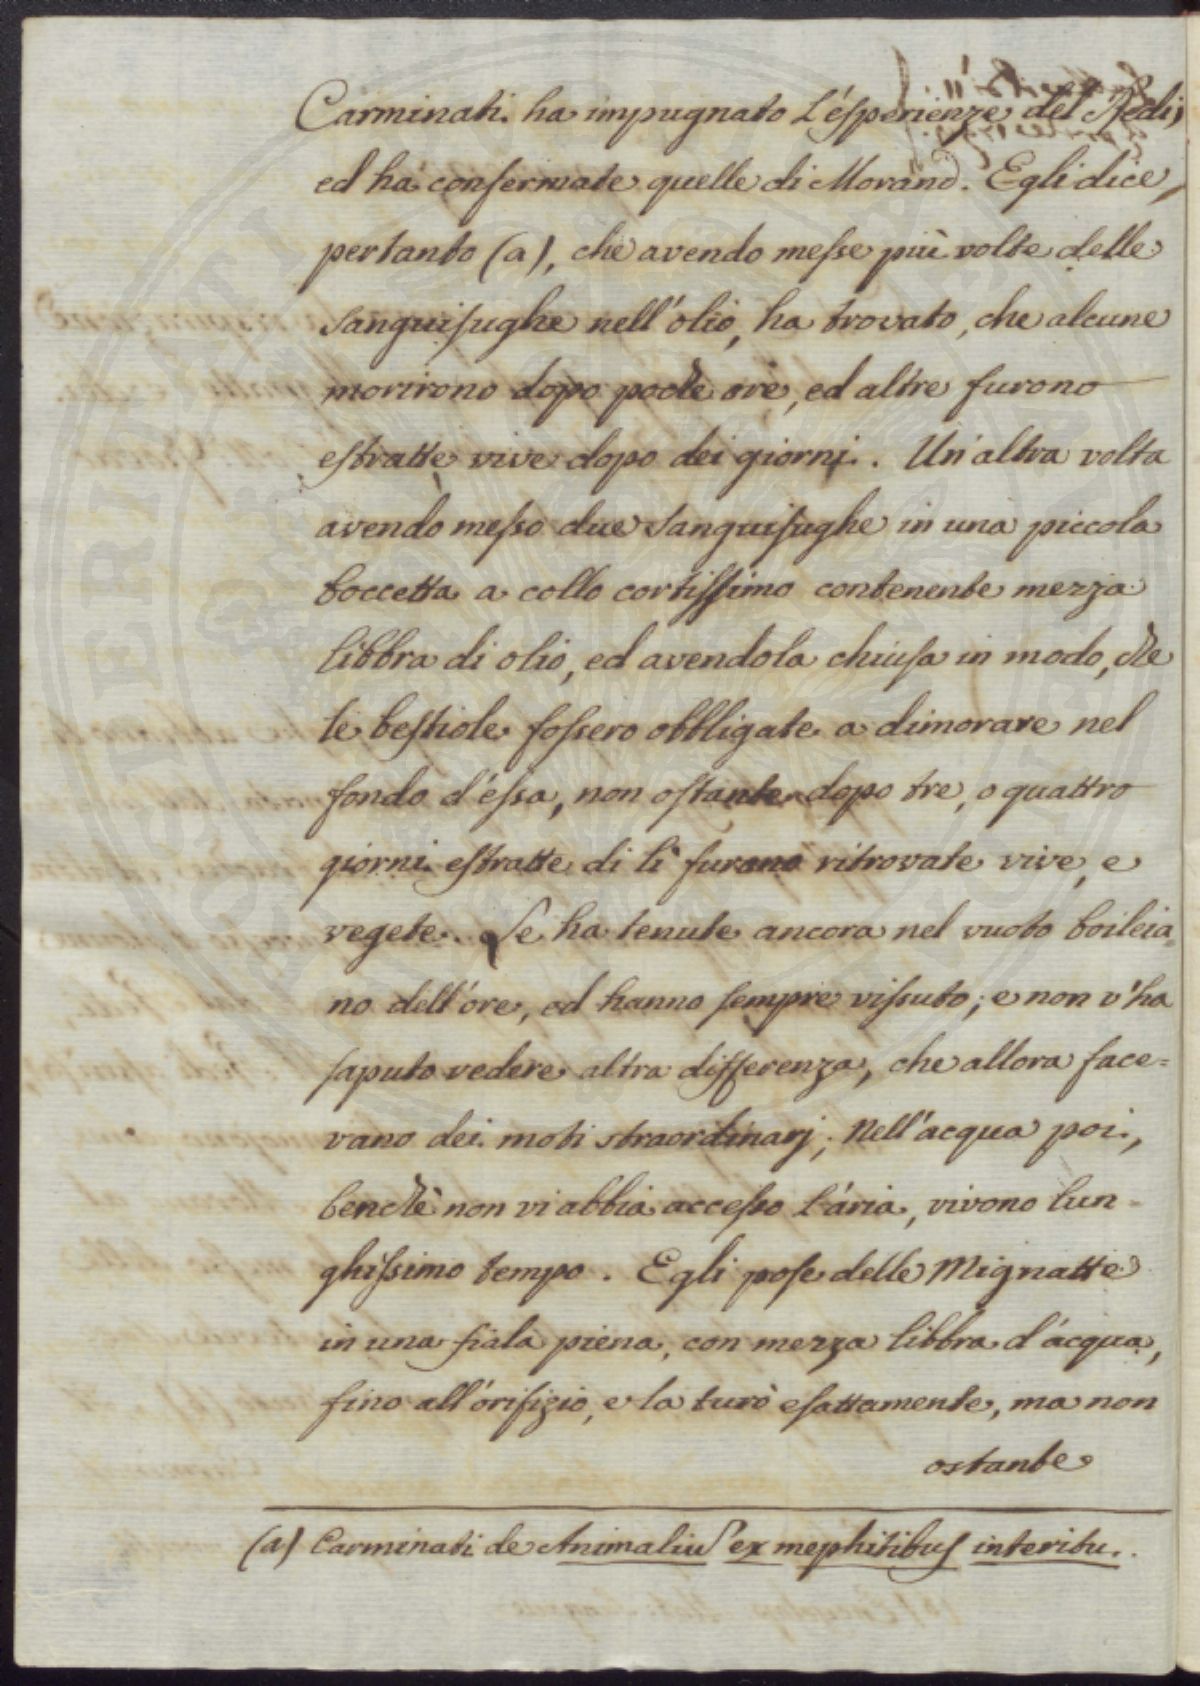 Carminati ha impugnato l'esperienze del Redi,
ed ha confermate quelle di Morand. Egli dice,
pertanto (a), che avendo messe più volte delle
sanguisughe nell'olio, ha trovato, che alcune
morirono dopo poche ore, ed altre furono
estratte vive dopo dei giorni. Un'altra volta
avendo messo due sanguisughe in una piccola
boccetta a collo cortissimo contenente mezza
libbra di olio, ed avendola chiusa in modo, che
le bestiole fossero obbligate a dimorare nel
fondo d'essa, non ostante dopo tre, o quattro
giorni estratte di lì furono ritrovate vive, e
vegete. Le ha tenute ancora nel vuoto boileia=
no dell'ore, ed hanno sempre vissuto; e non v'ha
saputo vedere altra differenza, che allora face=
vano dei moti straordinarj; Nell'acqua poi,
benchè non vi abbia accesso l'aria, vivono lun=
ghissimo tempo. Egli pose delle Mignatte
in una fiala piena, con mezza libbra d'acqua,
fino all'orifizio, e la turò esattamente, ma non
ostante
(a) Carminati de Animaliu' ex mephitibus interitu.